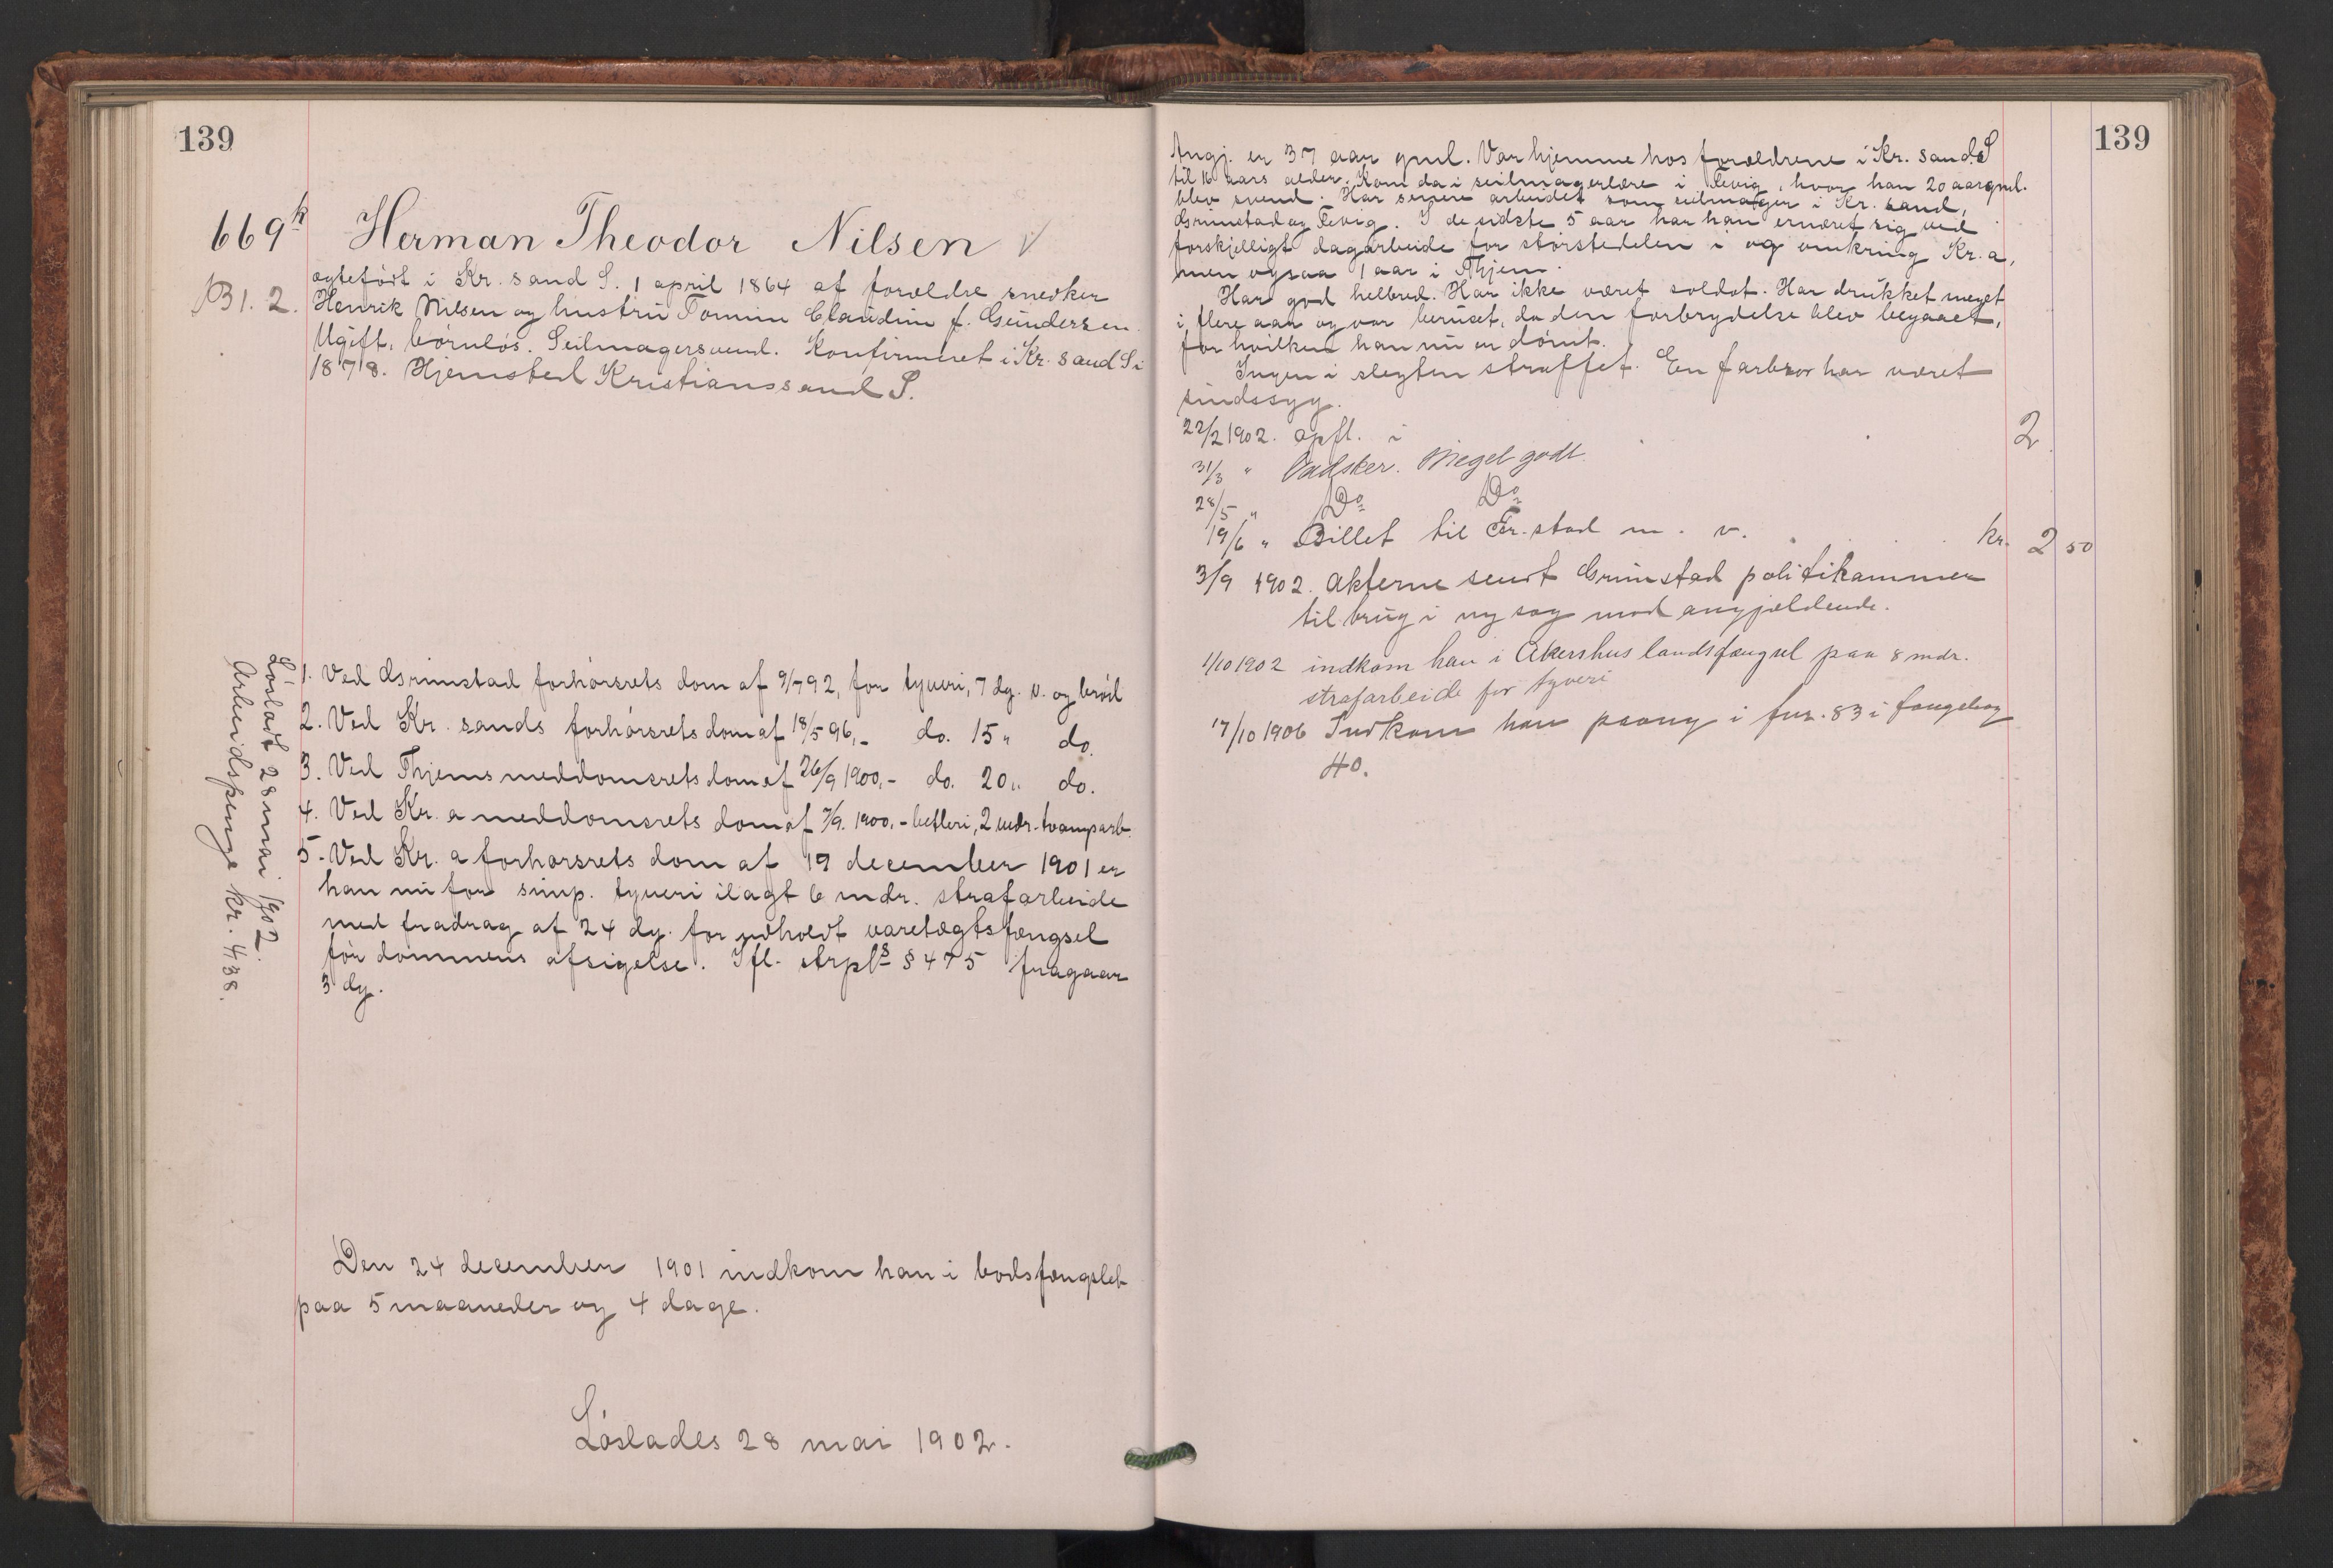 139
669k Herman Theodor Nilsen √
B1. 2.
ægtefødt i Kr. sand S. 1 april 1864 af forældre snedker
Henrik Nilsen og hustru Tomine Claudine f. Gundersen.
Ugift, børnløs. Seilmagersvend. Konfirmeret i Kr. sand S i
1878. Hjemsted Kristianssand S.
1. Ved Grimstad forhørsrets dom af 9/7 92, for tyveri, 7 dg. v. og brød
2. Ved Kr. sands forhørsrets dom af 18/5 96, - do. 15 " do.
3. Ved Thjems meddomsrets dom af 26/9 1900, - do. 20 " do.
4. Ved Kr. a meddomsrets dom af 7/9. 1900, - betleri, 2 mdr. tvangsarb.
5. Ved Kr. a forhørsrets dom af 19 december 1901 er
han nu for simp. tyveri ilagt 6 mdr. strafarbeide
med fradrag af 24 dg. for udholdt varetægtsfængsel
før dommens afsigelse. Ifl. strpls § 475 fragaar
3 dg.
Løsladt 28 mai 1902.
Arbeidspenge kr. 4.38.
Den 24 december 1901 indkom han i bodsfængslet
paa 5 maaneder og 4 dage.
Løslades 28 mai 1902.
139
Angj. er 37 aar gml. Var hjemme hos forældrene i Kr. sand S
til 16 aars alder. Kom da i seilmagerlære i Fevig, hvor han 20 aar gml.
blev svend. Har senere arbeidet som seilmager i Kr. sand,
Grimstad og Fevig. I de sidste 5 aar har han ernæret sig ved
forskjelligt dagarbeide for størstedelen i og omkring Kr. a,
men ogsaa 1 aar i Thjem.
Har god helbred. Har ikke været soldat. Har drukket meget
i flere aar og var beruset, da den forbrydelse blev begaaet,
for hvilken han nu er dømt.
Ingen i slegten straffet. En farbror har været
sindssyg.
22/2 1902. opfl. i 2
31/3 " Vadsker. Meget godt.
28/5 " Do Do
19/6 " Billet til Fr. stad m. v. kr. 2 50
3/9 1902. Akterne sendt Grimstad politikammer
til brug i ny sag mod angjældende.
1/10 1902 indkom han i Akershus landsfængsel paa 8 mdr.
strafarbeide for tyveri
17/10 1906 Indkom han paany i fnr. 83 i fangebog
40.